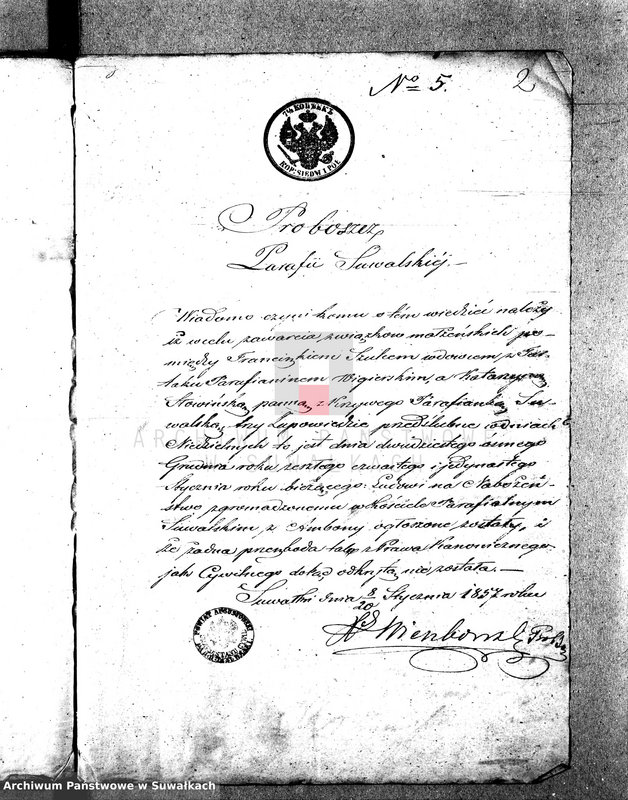 No 5. 2
7½ КОПѢЕКЪ
KOP: SIEDM I PÓŁ
Proboszcz
Parafii Suwalskiéj.
Wiadomo czyni komu o tém wiedzieć należy
iż w celu zawarcia związków małżeńskich po-
między Franciszkiem wdowcem, z Tar-
taku Parafianinem Wigierskim, a Katarzyną
Słowińską panną z Krzywego Parafianką Su-
walską, trzy Zapowiedzie przedślubne w dniach
Niedzielnych to jest dnia dwudziestego ósmego
Grudnia roku zeszłego czwartego i jedynastego
Stycznia roku bieżącego. Ludowi na Nabożeń-
stwo zgromadzonemu w Kościele Parafialnym
Suwalskim z Ambony ogłoszone zostały, i
że żadna przeszkoda tak z Prawa Kanonicznego
jak Cywilnego dotąd odkrytą nie została.—
Suwałki dnia 8/20 Stycznia 1857 roku
POWIAT AUGUSTOWSKI
Archiwum Państwowe w Suwałkach